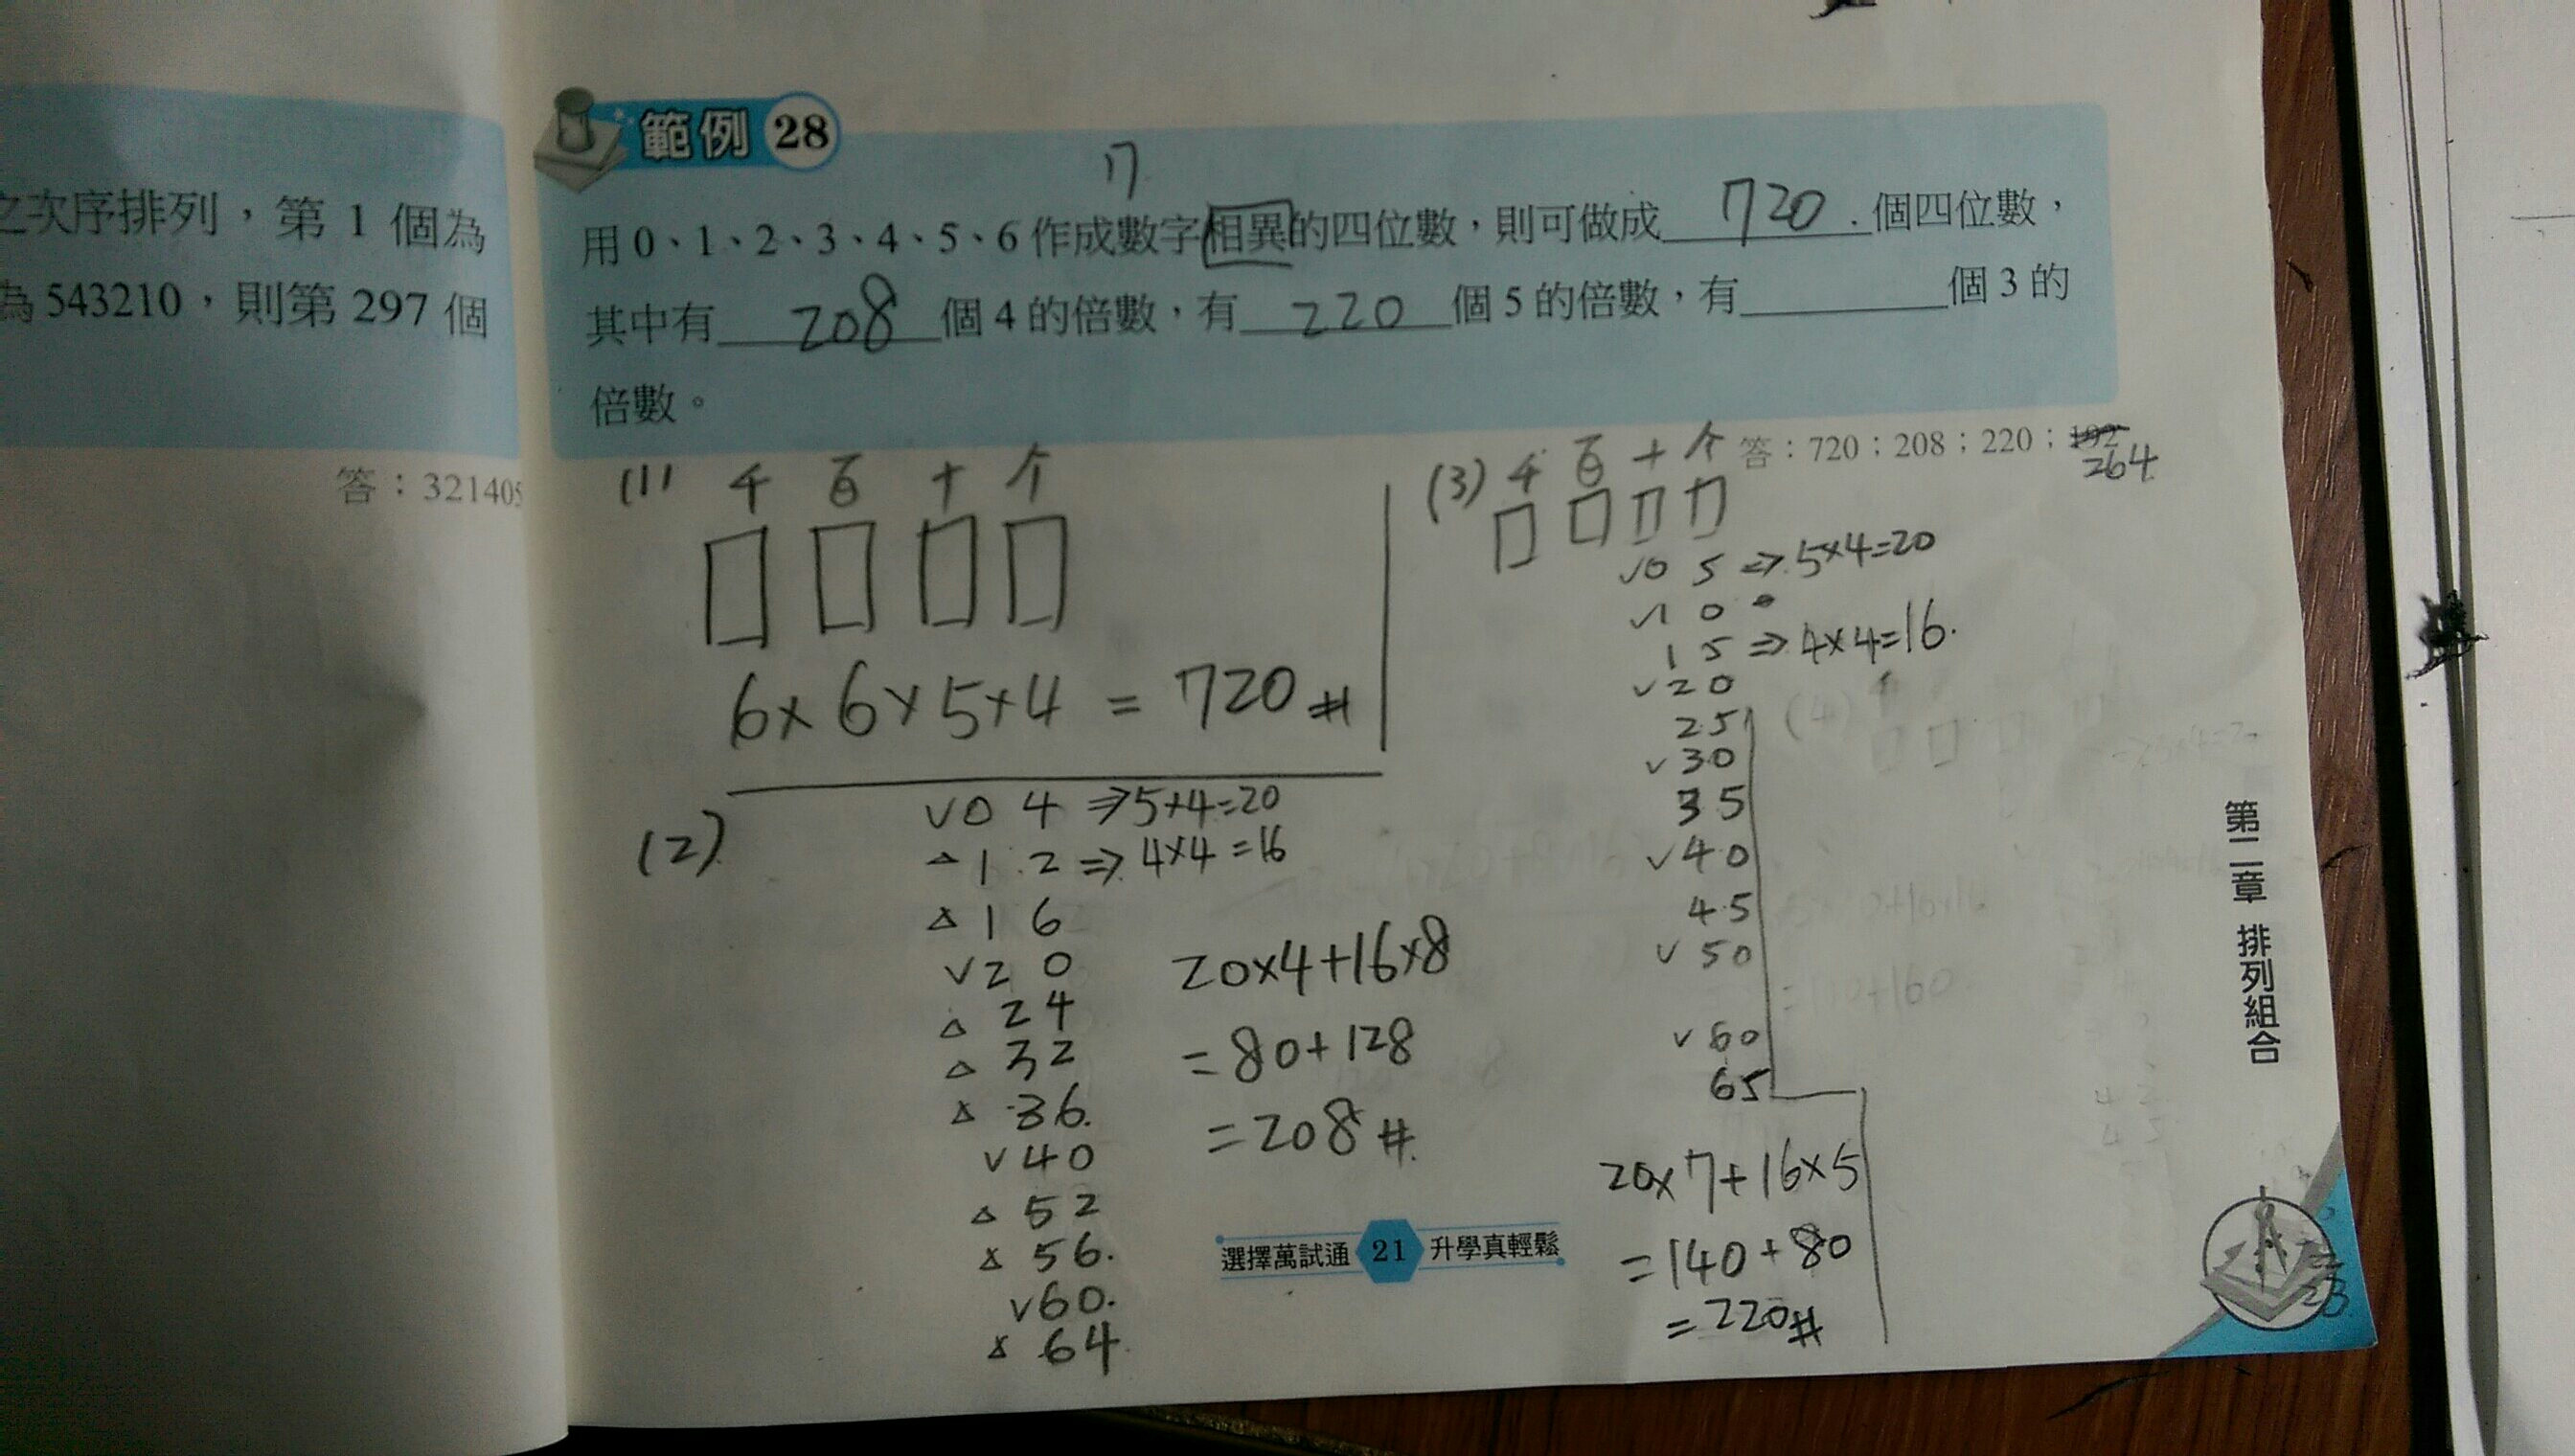 之次序排列，第 1 個為
為 543210，則第 297 個
答：321405
範例 28
用 0、1、2、3、4、5、6 作成數字相異的四位數，則可做成 720 個四位數，
其中有 208 個 4 的倍數，有 220 個 5 的倍數，有 個 3 的
倍數。
答：720；208；220；192
264
(1) 千 百 十 个
6×6×5×4 = 720 #
(2)
∨0 4 ⇒ 5×4=20
△ 1 2 ⇒ 4×4=16
△ 1 6
∨2 0
△ 24
△ 32
△ 36.
∨40
△ 52
△ 56.
∨60.
△ 64
20×4+16×8
=80+128
=208 #
(3) 千 百 十 个
∨0 5 ⇒ 5×4=20
∨1 0
1 5 ⇒ 4×4=16.
∨20
25
∨30
35
∨40
45
∨50
∨60
65
20×7+16×5
=140+80
=220#
第二章 排列組合
選擇萬試通 21 升學真輕鬆